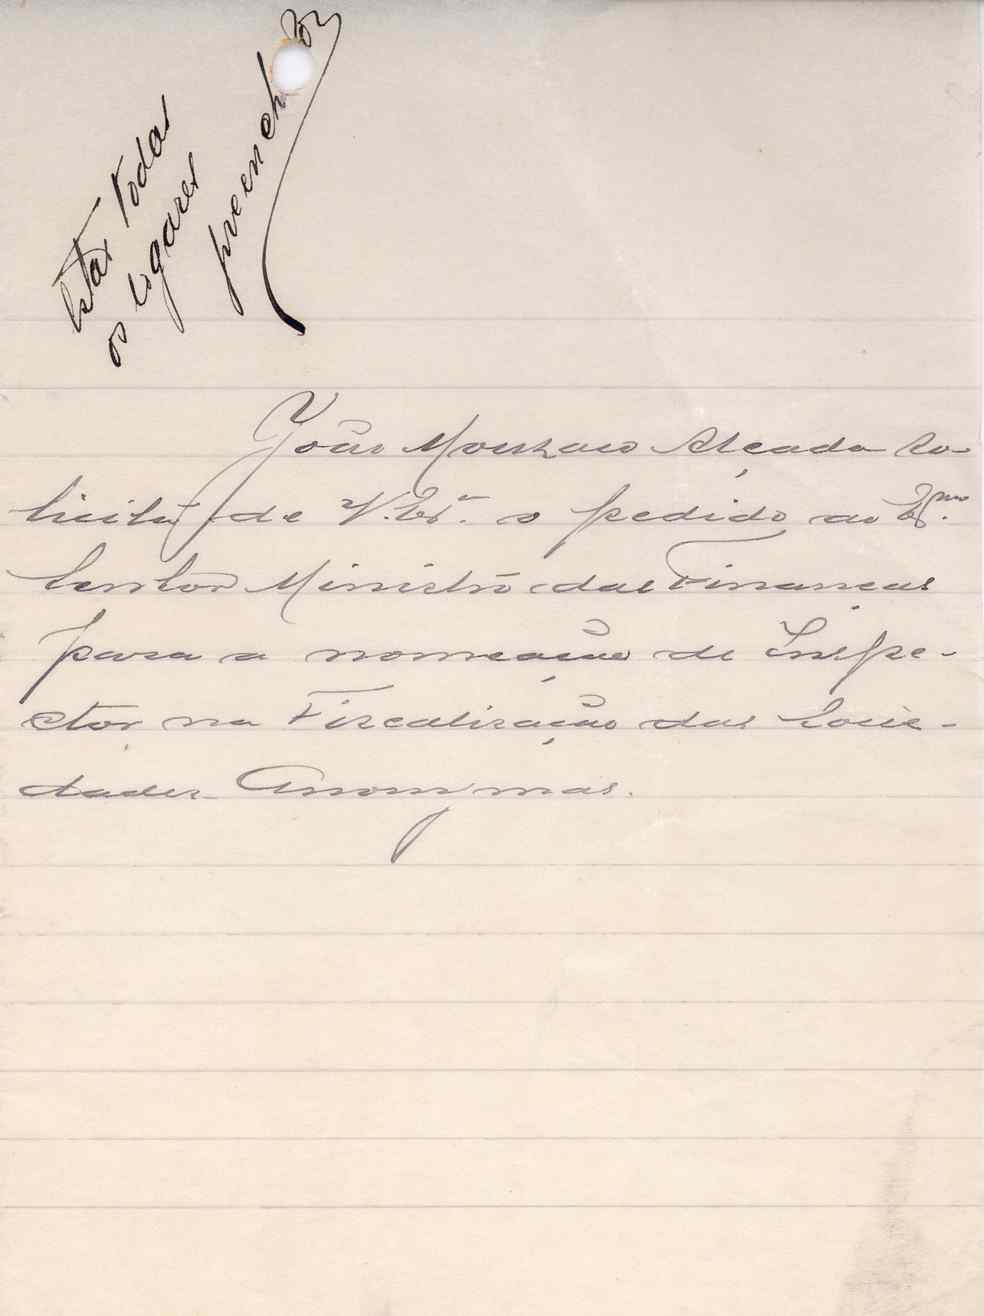 Estão todos
os logares
preenchidos
João Alçada so-
licita de V. Exª. o pedido ao Ex.mo
Senhor Ministro das Finanças
para a nomeação de Inspe-
ctor na Fiscalização das Socie-
dades Anonymas.